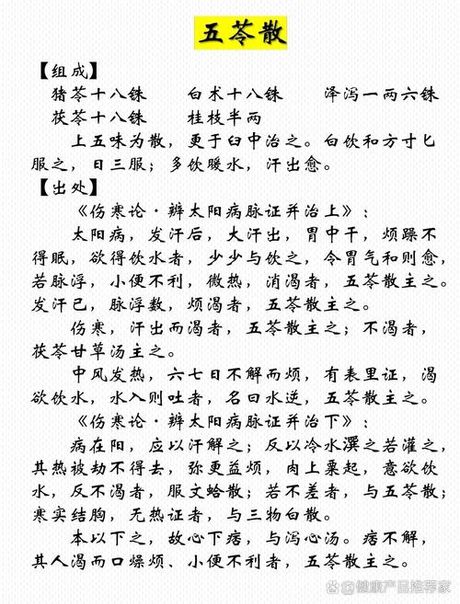 五苓散
【组成】
猪苓十八铢 白术十八铢 泽泻一两六铢
茯苓十八铢 桂枝半两
上五味为散，更于臼中治之。白饮和方寸匕
服之，日三服；多饮暖水，汗出愈。
【出处】
《伤寒论·辨太阳病脉证并治上》：
太阳病，发汗后，大汗出，胃中干，烦躁不
得眠，欲得饮水者，少少与饮之，令胃气和则愈，
若脉浮，小便不利，微热，消渴者，五苓散主之。
发汗已，脉浮数，烦渴者，五苓散主之。
伤寒，汗出而渴者，五苓散主之；不渴者，
茯苓甘草汤主之。
中风发热，六七日不解而烦，有表里证，渴
欲饮水，水入则吐者，名曰水逆，五苓散主之。
《伤寒论·辨太阳病脉证并治下》：
病在阳，应以汗解之；反以冷水潠之若灌之，
其热被劫不得去，弥更益烦，肉上粟起，意欲饮
水，反不渴者，服文蛤散；若不差者，与五苓散；
寒实结胸，无热证者，与三物白散。
本以下之，故心下痞，与泻心汤。痞不解，
其人渴而口燥烦、小便不利者，五苓散主之。
@健康产品推荐家